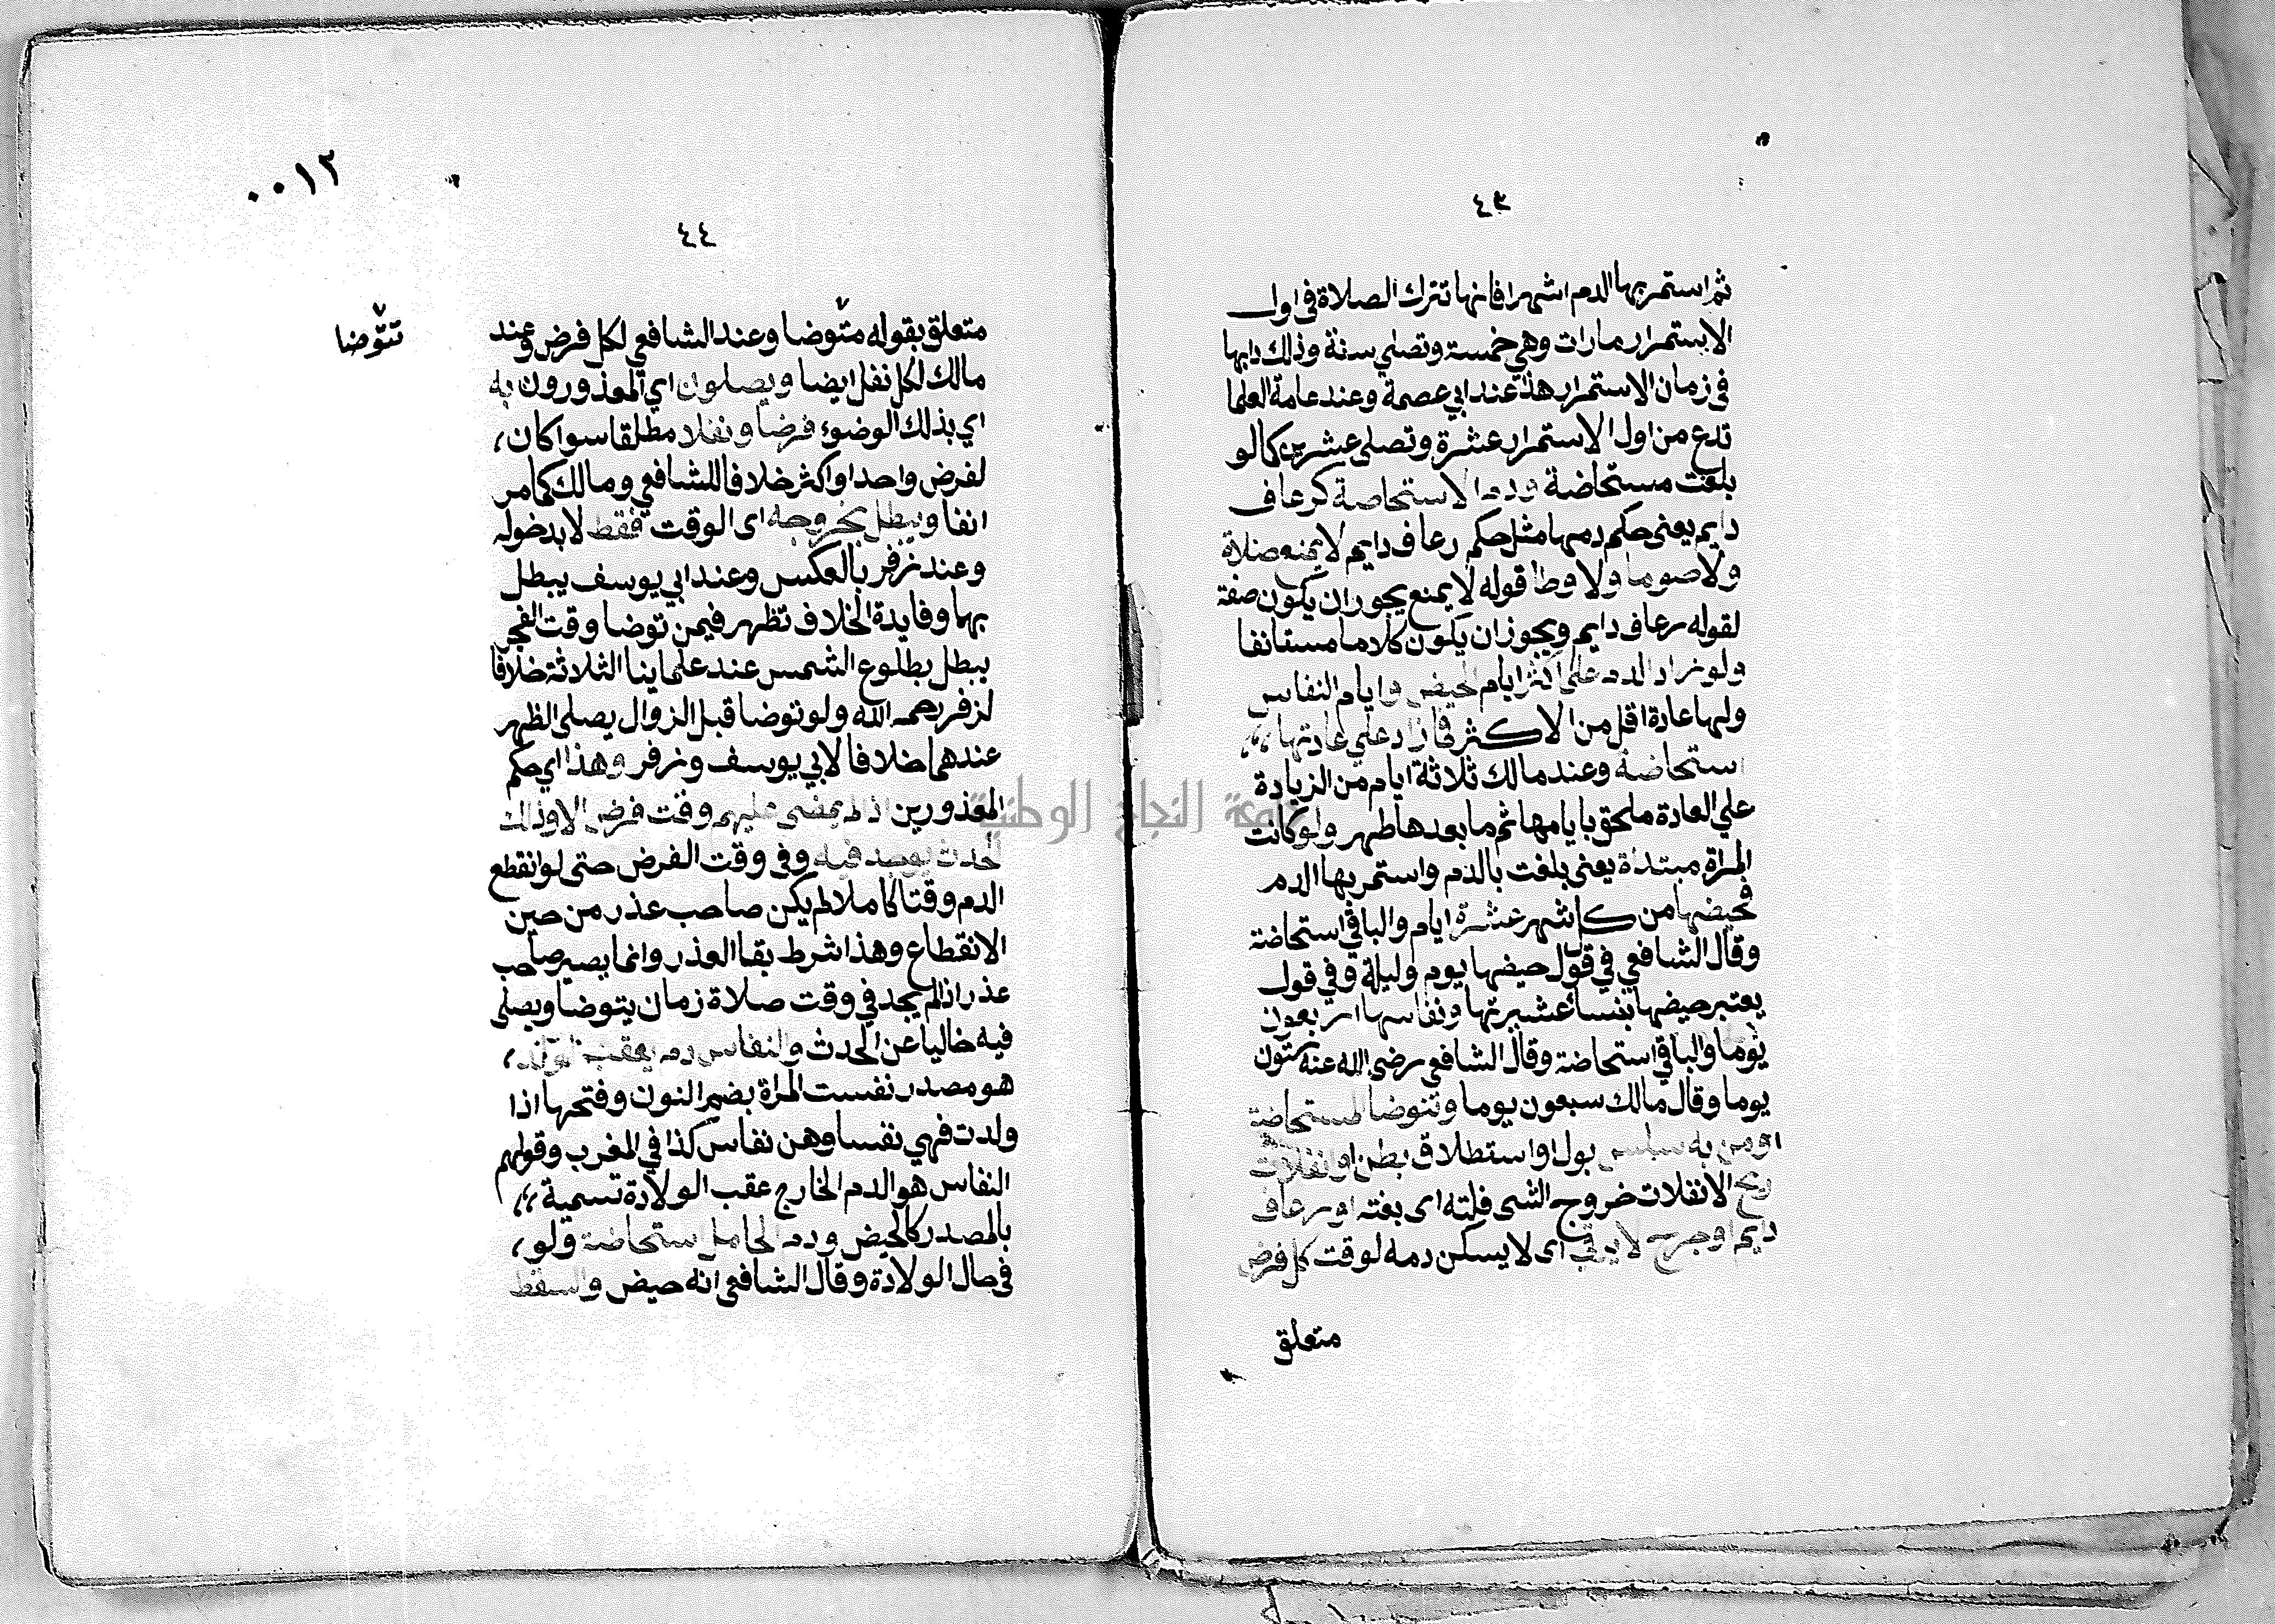 ٤٣
ثم استمر بها الدم اشهرا فانها تترك الصلاة في اول
الاستمرار مارات وهي خمسة وتصلي ستة وذلك دابها
في زمان الاستمرار هذا عند ابي عصمة وعند عامة العلما
تدع من اول الاستمرار عشرة وتصلي عشرين كما لو
بلغت مستحاضة ودم الاستحاضة كرعاف
دايم يعني حكم دمها مثل حكم رعاف دايم لا يمنع صلاة
ولا صوما ولا وطا قوله لا يمنع يجوز ان يكون صفة
لقوله رعاف دايم ويجوز ان يكون كلاما مستانفا
ولو زاد الدم على اكثر ايام الحيض وايام النفاس
ولها عادة اقل من الاكثر فما زاد علي عادتها
استحاضة وعند مالك ثلاثة ايام من الزيادة
علي العادة ملحق بايامها ثم ما بعدها طهر ولو كانت
المراة مبتداة يعني بلغت بالدم واستمر بها الدم
فحيضها من كل شهر عشرة ايام والباقي استحاضة
وقال الشافعي في قول حيضها يوم وليلة وفي قول
يعتبر حيضها بنساء عشيرتها ونفاسها اربعون
يوما والباقي استحاضة وقال الشافعي رضي الله عنه ستون
يوما وقال مالك سبعون يوما وتتوضا المستحاضة
او من به سلس بول او استطلاق بطن او انفلات
ريح الانفلات خروج الشي فلتة اى بغتة او رعاف
دايم او جرح لا يرقى اى لا يسكن دمه لوقت كل فرض
متعلق
٠٠١٣
٤٤
متعلق بقوله متوضا وعند الشافعي لكل فرض وعند
تتوضا
مالك لكل نفل ايضا ويصلون اي المعذورون به
اي بذلك الوضوء فرضا ونفلا مطلقا سوا كان،
لفرض واحد او اكثر خلافا للشافعي ومالك كما مر
انفا ويبطل بخروجه اى الوقت فقط لا بدخوله
وعند زفر بالعكس وعند ابي يوسف يبطل
بهما وفايدة الخلاف تظهر فيمن توضا وقت الفجر
يبطل بطلوع الشمس عند علماينا الثلاثة خلافا
لزفر رحمه الله ولو توضا قبل الزوال يصلى الظهر
عندهما خلافا لابي يوسف وزفر وهذا اي حكم
المعذورين اذا لم يمضى عليهم وقت فرض الا وذلك
الحدث يوجد فيه وفي وقت الفرض حتى لو انقطع
الدم وقتا كاملا لم يكن صاحب عذر من حين
الانقطاع وهذا شرط بقا العذر وانما يصير صاحب
عذر اذا لم يجد في وقت صلاة زمان يتوضا ويصلى
فيه خاليا عن الحدث والنفاس دم يعقب الولد،
هو مصدر نفست المراة بضم النون وفتحها اذا
ولدت فهي نفسا وهن نفاس كذا في المغرب وقولهم
النفاس هو الدم الخارج عقب الولادة تسمية
بالمصدر كالحيض ودم الحامل استحاضة ولو،
في حال الولادة وقال الشافعي انه حيض والسقط
جامعة النجاح الوطنية